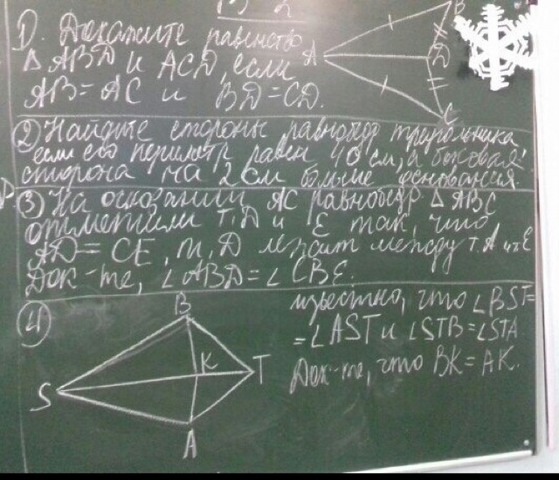 В-2
1). Докажите равенство
△ ABD и ACD, если
AB = AC и BD = CD.
A
B
D
C
② Найдите стороны равнобедр треугольника,
если его периметр равен 40 см, а боковая
сторона на 2 см больше основания.
③ На основании AC равнобедр △ ABC
отметили т. D и E так, что
AD = CE, т. D лежит между т. A и E
Док-те, ∠ABD = ∠CBE.
④
B
K
S
T
A
известно, что ∠BST =
= ∠AST и ∠STB = ∠STA
Док-те, что BK = AK.